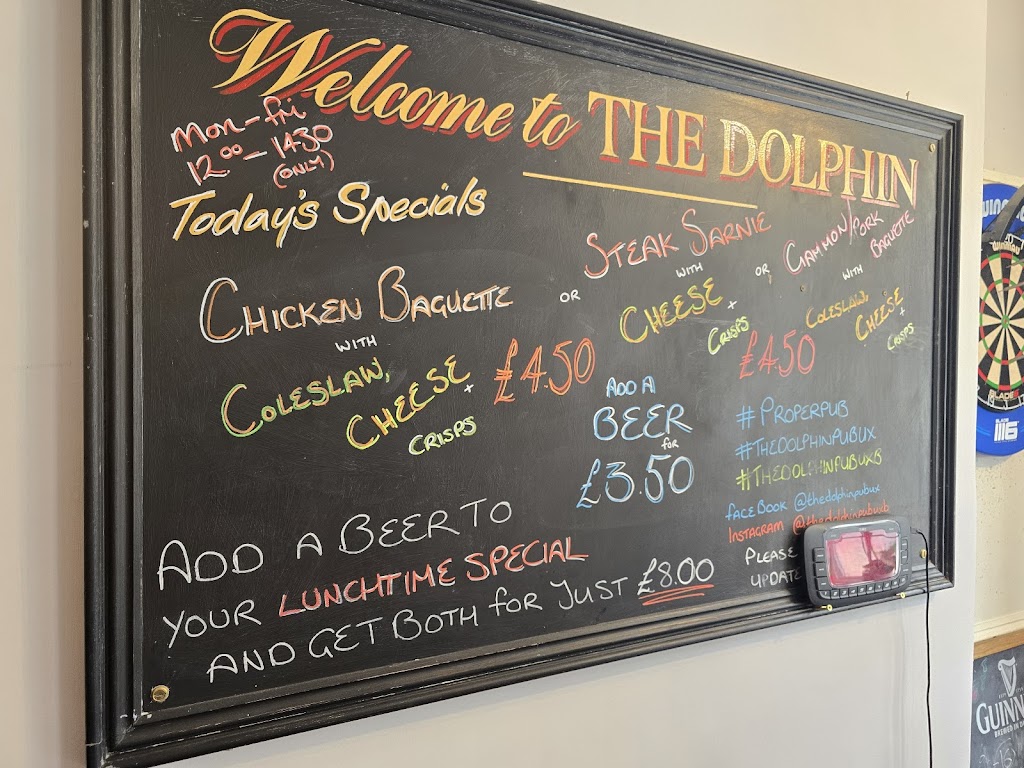 Welcome to THE DOLPHIN
Mon-fri
12⁰⁰-1430
(ONLY)
Today's Specials
CHICKEN BAGUETTE
WITH
COLESLAW,
CHEESE +
CRISPS
£4.50
OR
STEAK SARNIE
WITH
CHEESE +
CRISPS
OR
GAMMON/PORK
BAGUETTE
WITH
COLESLAW,
CHEESE +
CRISPS
£4.50
ADD A
BEER
for
£3.50
#PROPERPUB
#THEDOLPHINPUBUX
#THEDOLPHINPUBUXB
faceBook @thedolphinpubux
INSTAGRAM @thedolphinpubuxb
PLEASE
UPDATE
ADD A BEER TO
YOUR LUNCHTIME SPECIAL
AND GET BOTH for JUST £8.00
GUINN